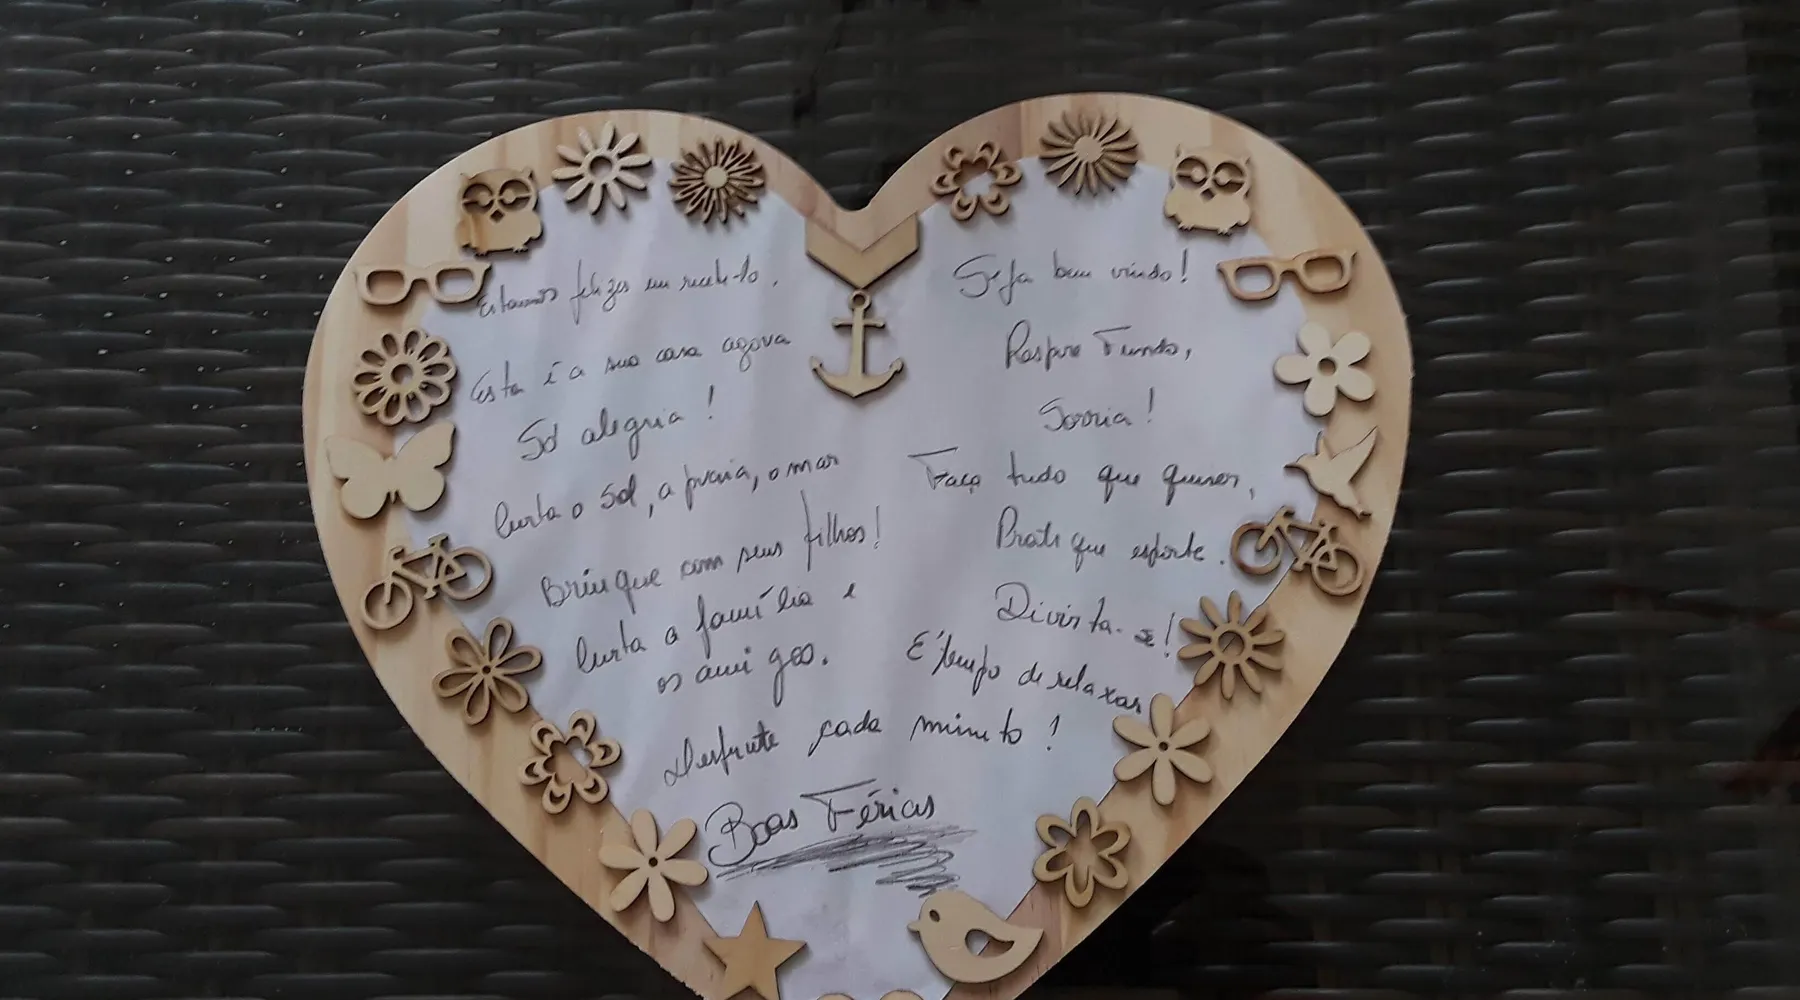 Estamos felizes em recebe-lo.
Esta é a sua casa agora
Só alegria!
Curta o Sol, a praia, o mar
Brinque com seus filhos!
Curta a família e
os amigos.
Seja bem vindo!
Respire Fundo,
Sorria!
Faça tudo que quiser,
Pratique esporte.
Divirta-se!
É tempo de relaxar
Desfrute cada minuto!
Boas Férias